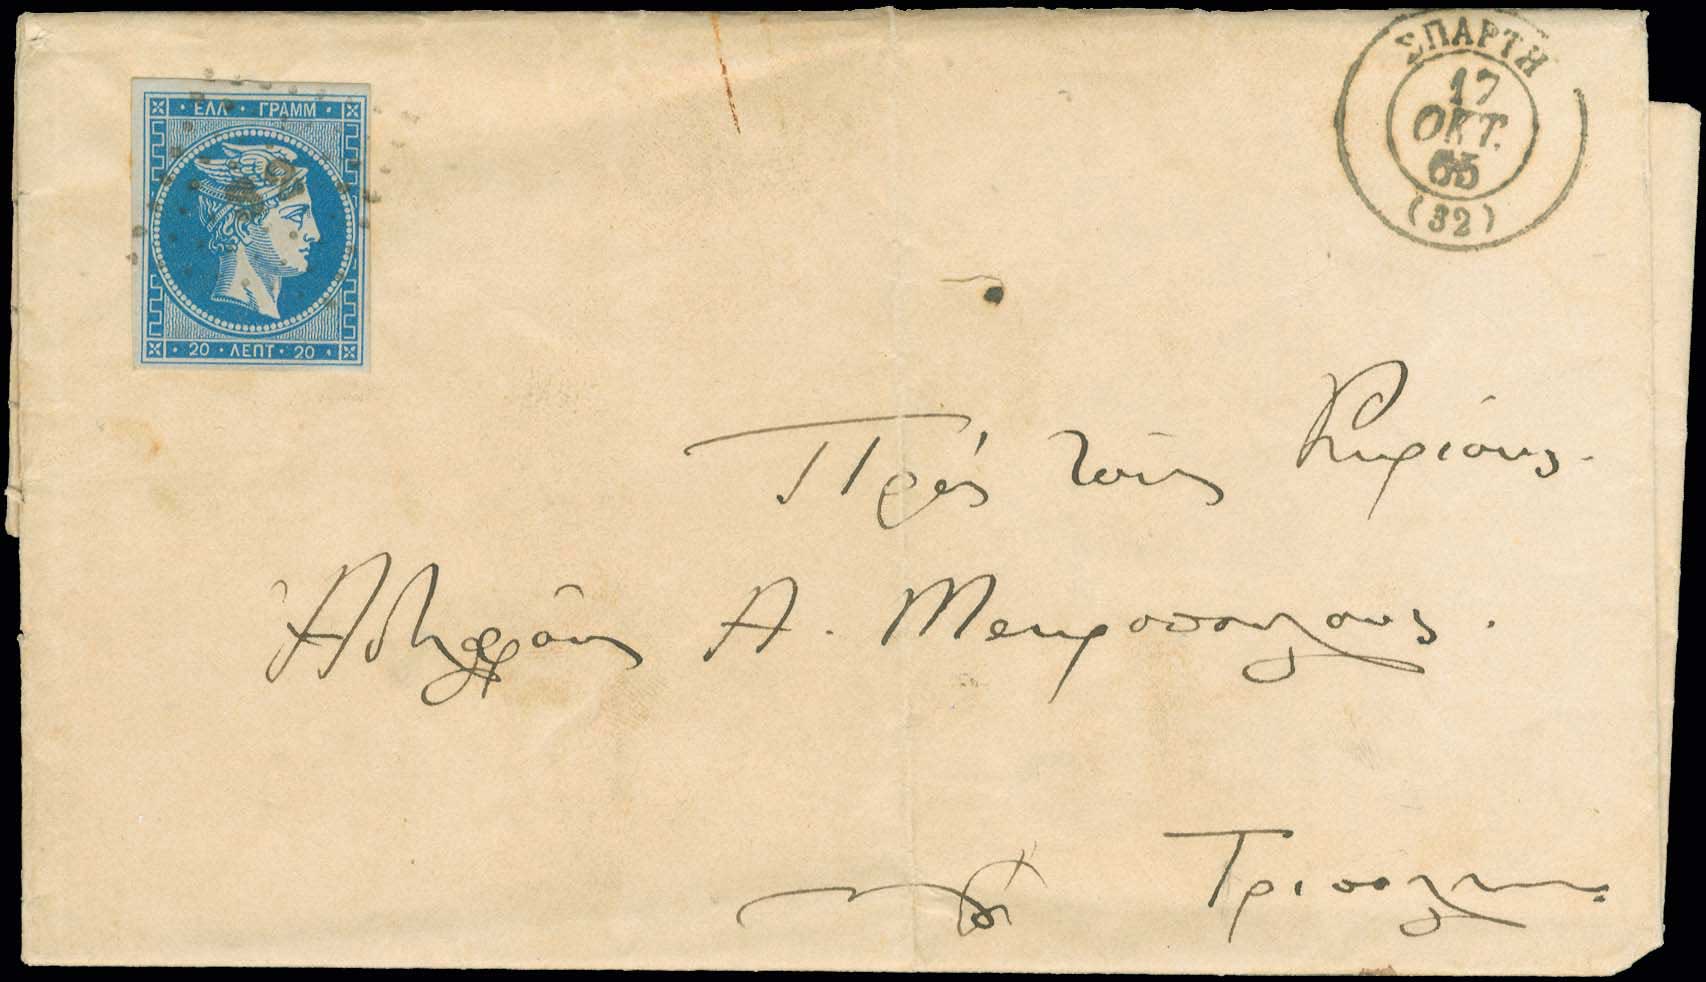 ΕΛΛ · ΓΡΑΜΜ
20 · ΛΕΠΤ · 20
ΣΠΑΡΤΗ
17
ΟΚΤ.
65
(32)
Πρὸς τοὺς Κυρίους
Ἀδελφοὺς Α. Μακροπούλους.
Τριπολιν